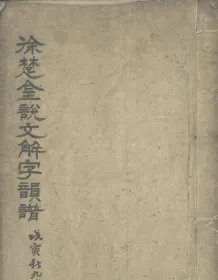 徐楚金說文解字韻譜
戊寅秋九